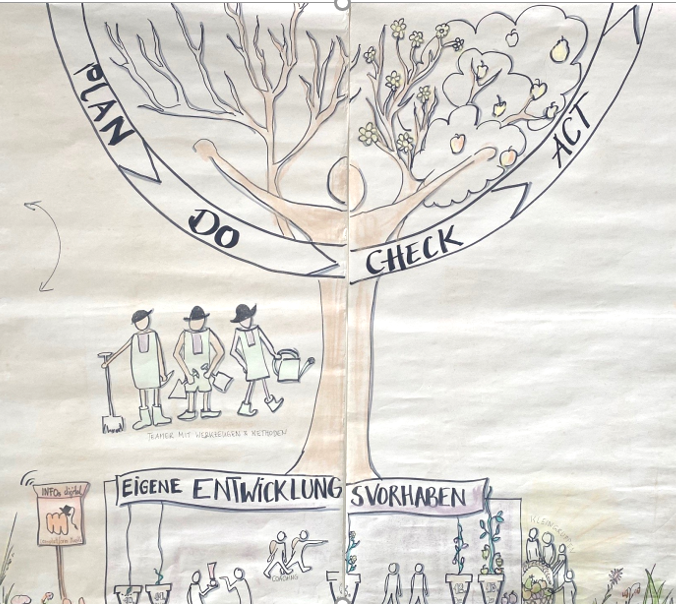 PLAN
DO
CHECK
ACT
TEAMER MIT WERKZEUGEN & METHODEN
INFOs digital
EIGENE ENTWICKLUNGSVORHABEN
COACHING
KLEINGRUPPEN